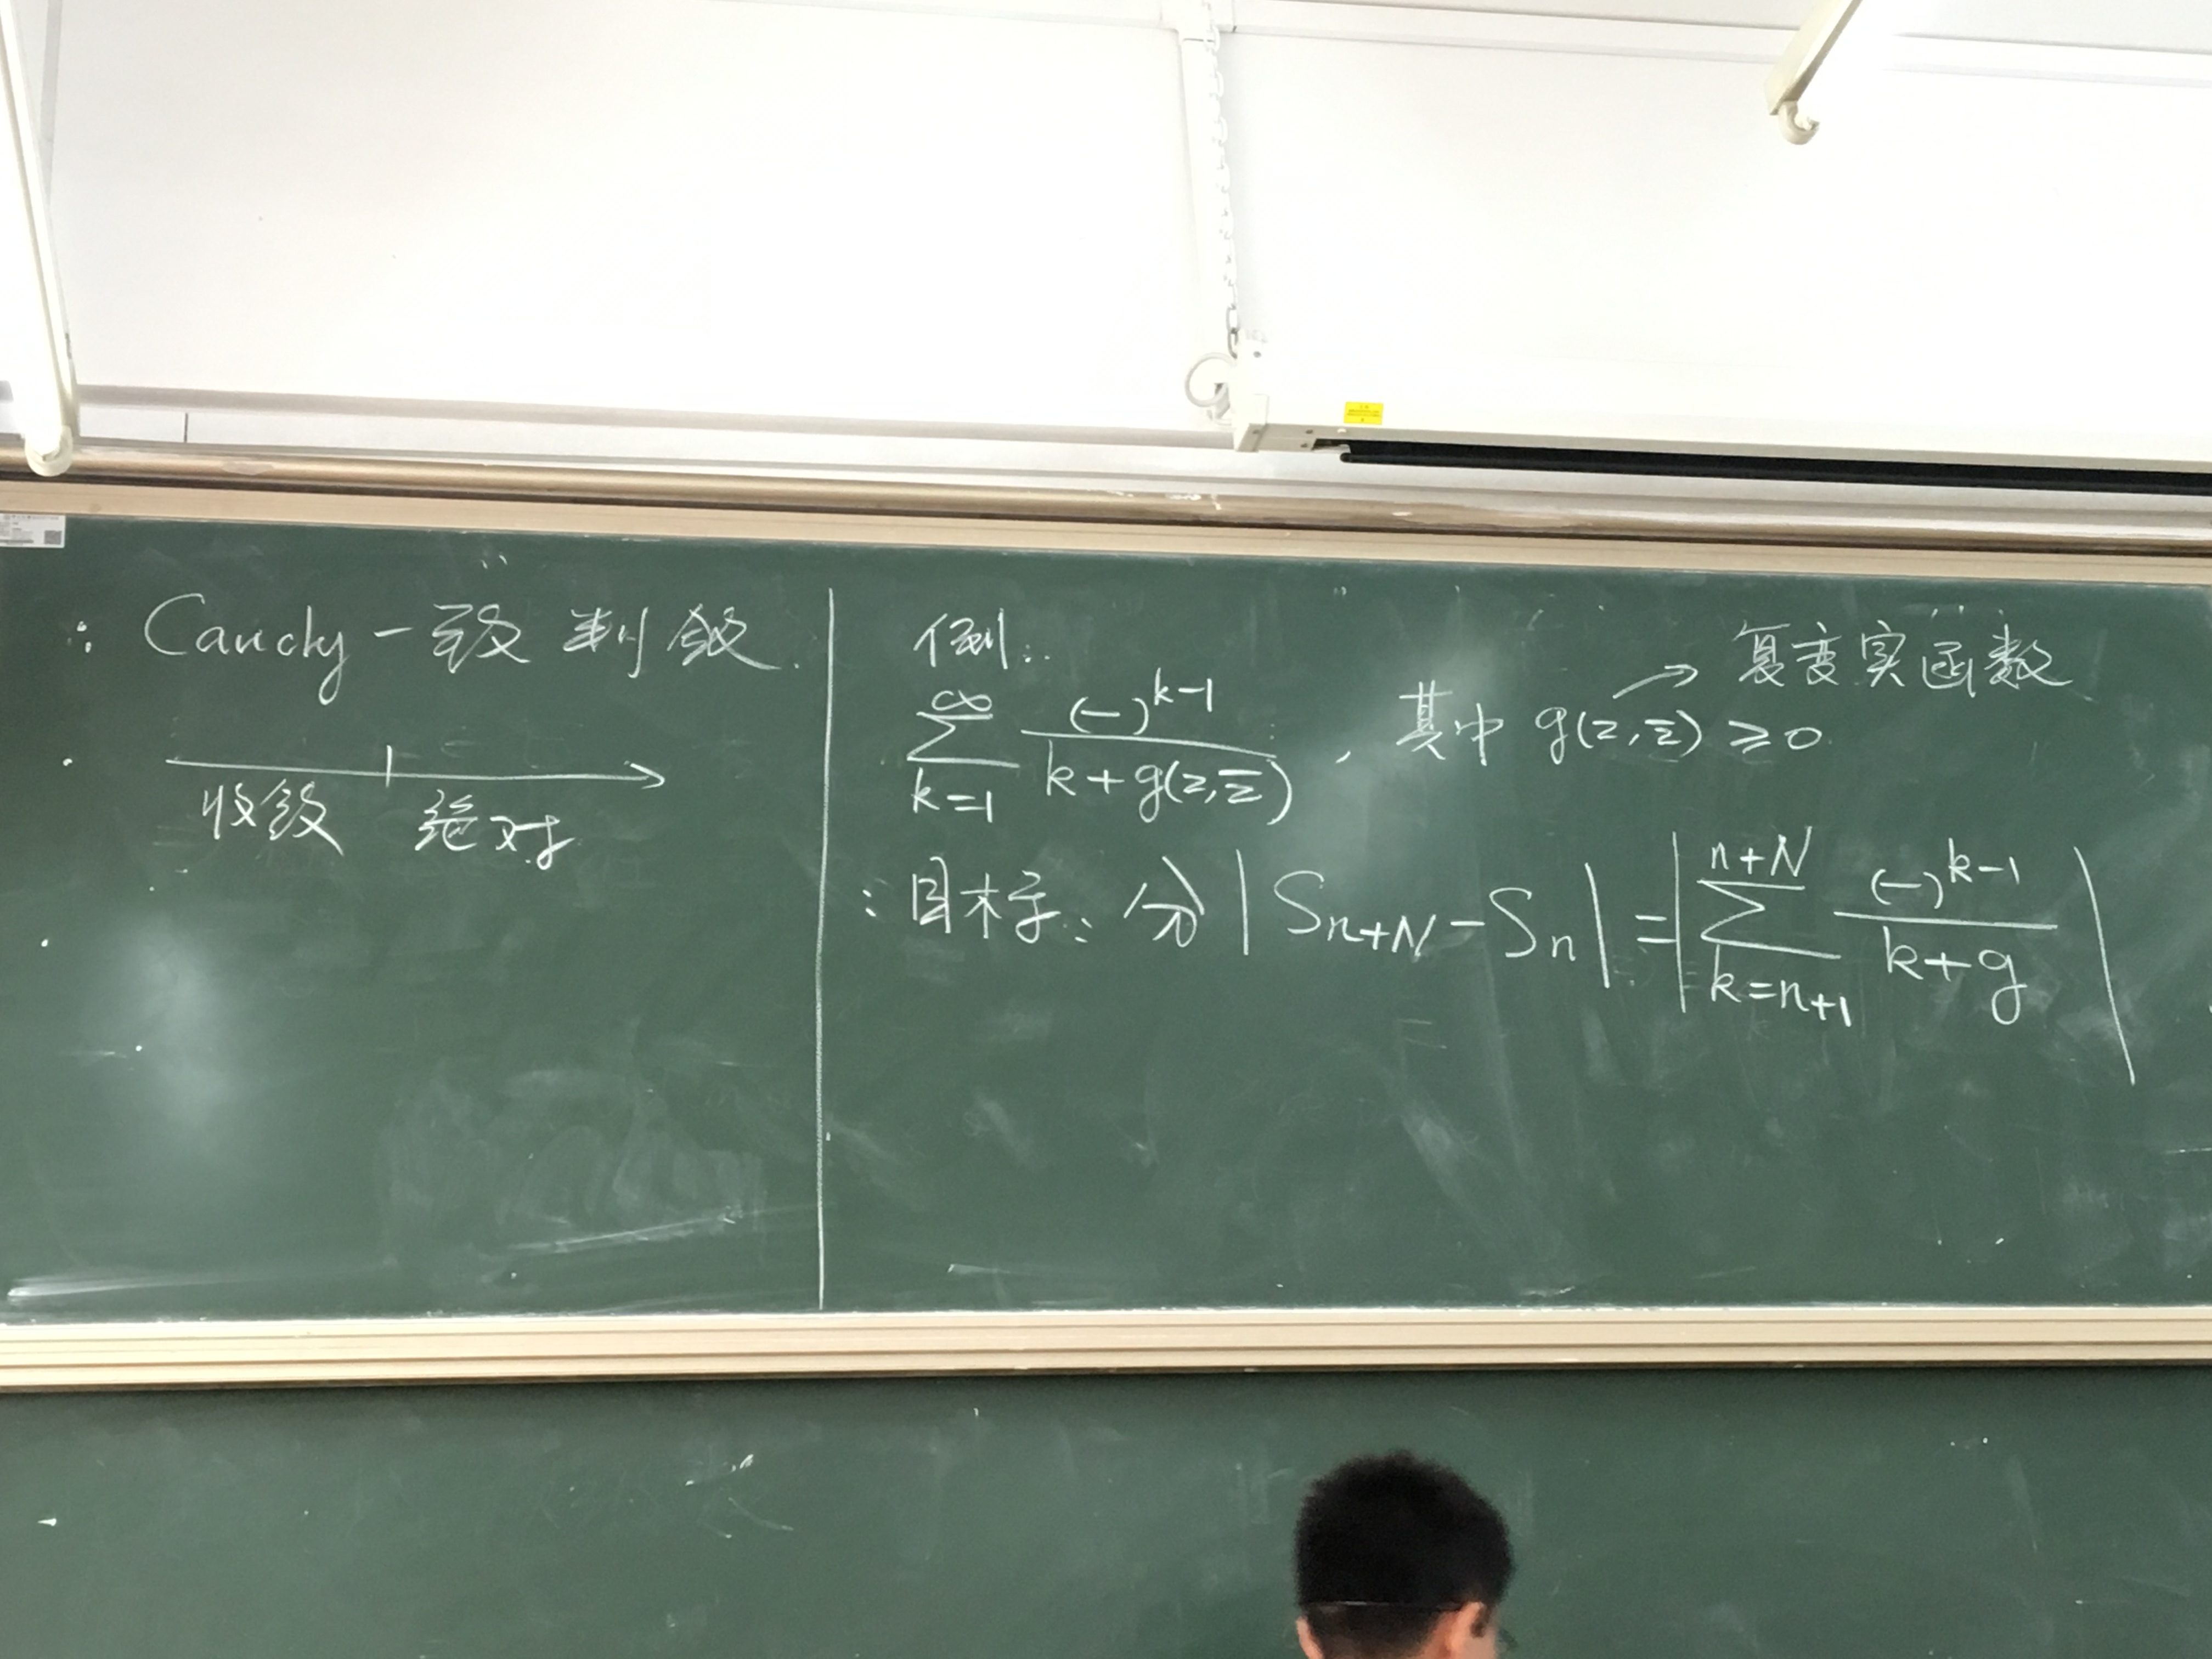 : Cauchy 一致判敛.
收敛 绝对
例:
∑_{k=1}^{∞} (-)^{k-1} / (k+g(z,z̄)) , 其中 g(z,z̄) ≥0. → 复变实函数
: 目标: 分 |S_{n+N} - S_n| = |∑_{k=n+1}^{n+N} (-)^{k-1} / (k+g)|